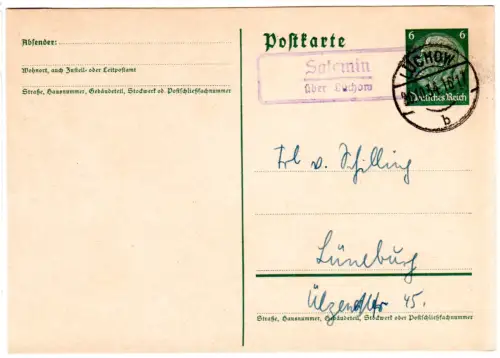 Absender:
Wohnort, auch Zustell- oder Leitpostamt
Straße, Hausnummer, Gebäudeteil, Stockwerk od. Postschließfachnummer
Postkarte
6 6
Deutsches Reich
LÜCHOW
b
Satemin
über Lüchow
Frl v. Schilling
Lüneburg
45.
Straße, Hausnummer, Gebäudeteil, Stockwerk oder Postschließfachnummer